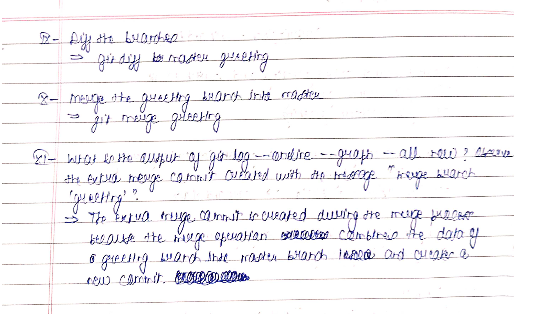 8- Diff the branches
⇒ git diff master greeting
8- merge the greeting branch into master
⇒ git merge greeting
What is the output of git log --oneline --graph --all now? Observe
the extra merge commit created with the message "merge branch
'greeting'".
⇒ The extra merge commit is created during the merge process
because the merge operation combines the data of
a greeting branch into master branch and creates a
new commit.